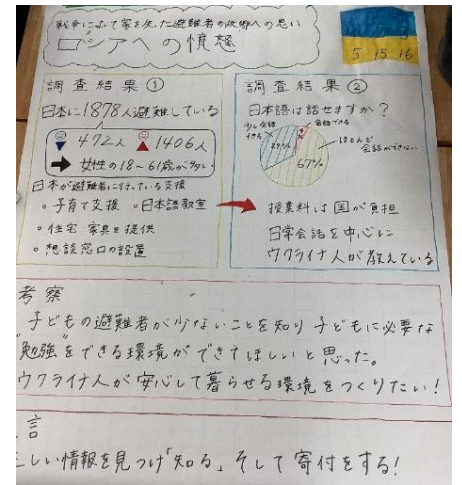 戦争によって家を失った避難者の故郷への思い
ロシアへの憤怒
5 15 16
調査結果①
日本に1878人避難している
472人 1406人
➡ 女性の18～61歳が多い
日本が避難者に行っている支援
・子育て支援 ・日本語教室
・住宅・家具を提供
・想談窓口の設置
調査結果②
日本語は話せますか？
少し会話できる
会話できる
ほとんど会話ができない
29%
4%
67%
授業料は国が負担
日常会話を中心に
ウクライナ人が教えている
考察
子どもの避難者が少ないことを知り子どもに必要な
"勉強"をできる環境ができてほしいと思った。
ウクライナ人が安心して暮らせる環境をつくりたい！
言
しい情報を見つけ「知る」そして寄付をする！